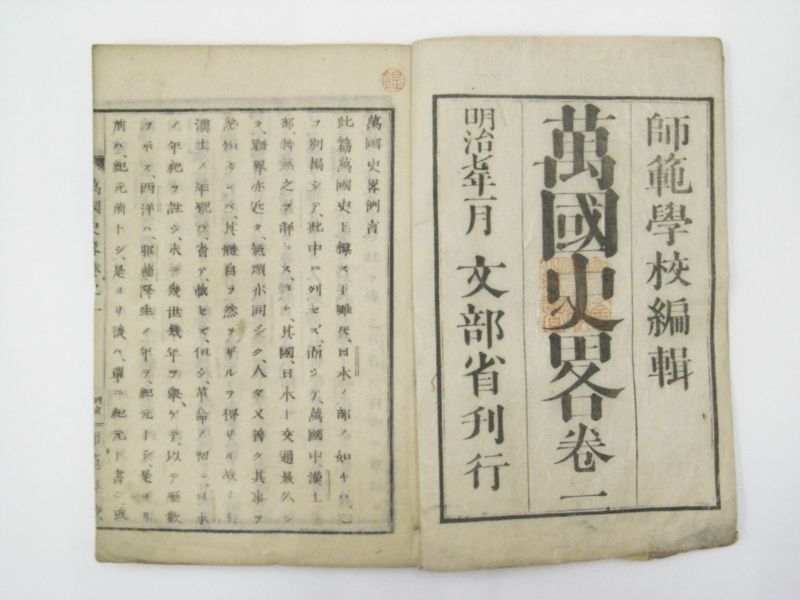 師範學校編輯
萬國史畧卷一
明治七年一月 文部省刊行
萬國史畧例言
此篇萬國史ト標スト雖𪜈、日本ノ部ノ如キハ、
ヲ別揭シテ、此中ニ列セズ、而シテ、萬國中、漢土ノ
部、特ニ之ヲ詳ニス、是レ、其國、日本ト交通最久シ
ク、疆界亦近ク、氣類亦同シク、人々又善ク其事ヲ
熟知スレバ、其體自ラ然ラザルヲ得ザル故ナリ
漢土ノ年號ハ、省テ、載セズ、但シ、革命ノ初ニ、日本
ノ年紀ヲ註シ、末ニ幾世幾年ヲ擧ゲテ、以テ歷數
ヲ示ス、西洋ハ、耶蘇降生ノ年ヲ、紀元トシ、是ヨリ
前ハ、紀元前トシ、是ヨリ後ハ、單ニ紀元ト書シ、或
萬國史畧卷之一